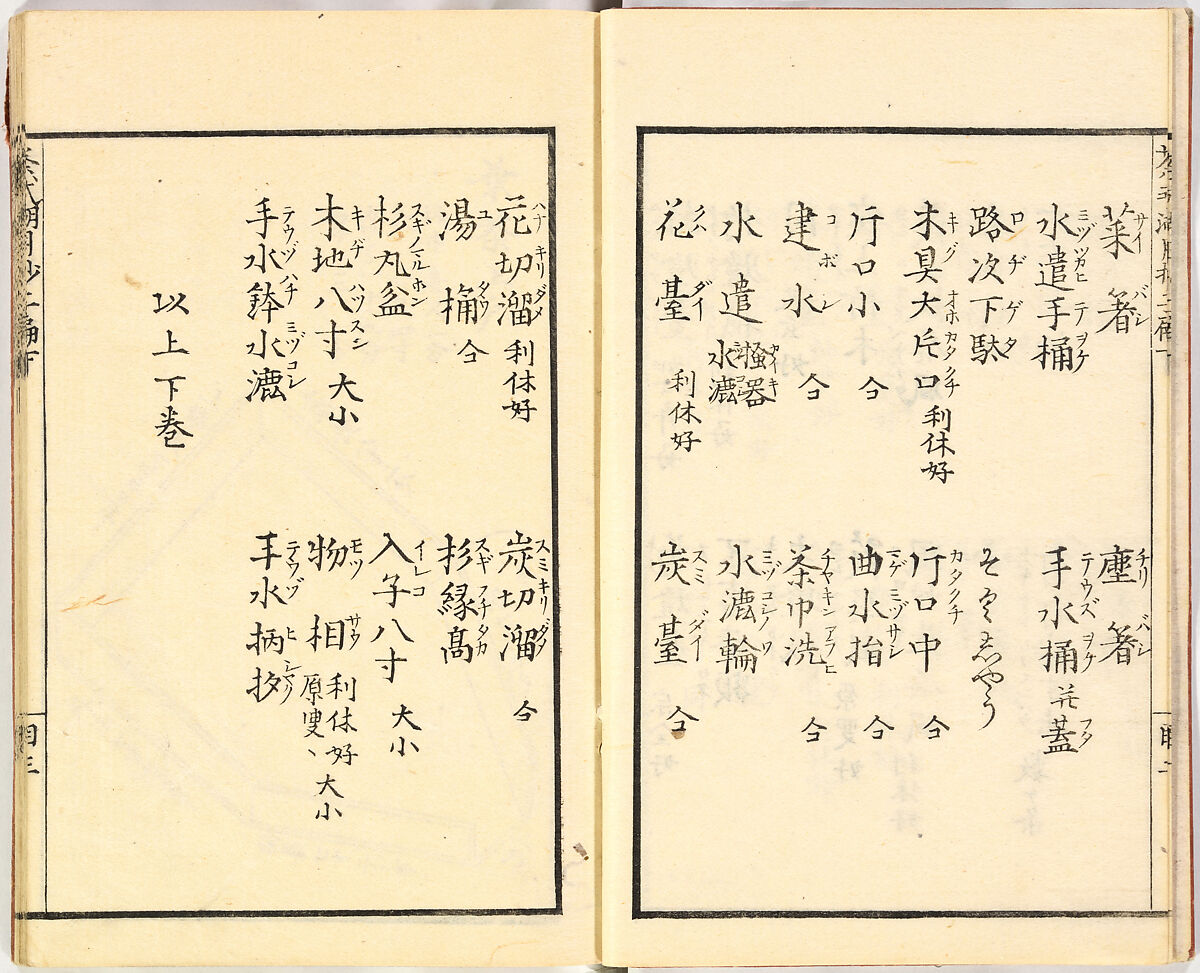 菜箸 サイバシ
塵箸 チリバシ
水遣手桶 ミヅツカヒテヲケ
手水桶 テウズヲケ 并蓋 フタ
路次下駄 ロヂゲタ
木具大片口 キグオホカタクチ 利休好
片口中 カタクチ 仝
片口小 仝
曲水指 マゲミヅサシ 仝
建水 コボシ 仝
茶巾洗 チヤキンアラヒ 仝
水遣
水漉輪 ミヅコシノワ
花臺 ダイ 利休好
炭臺 スミダイ 仝
花切溜 ハナキリダメ 利休好
炭切溜 スミキリダメ 仝
湯桶 ユタウ 仝
杉縁高 スギフチタカ
杉丸盆 スギノマルホン
入子八寸 イレコ 大小
木地八寸 キヂハツスン 大小
物相 モツサウ 利休好 大小
原叟〻
手水鉢水漉 テウヅハチミヅコシ
手水柄杓 テウヅヒシヤク
以上下巻
四三